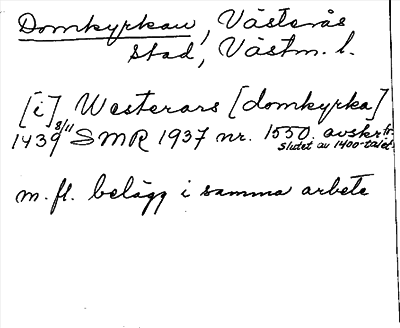 Domkyrkan, Västerås
stad, Västm. l.
[i] Westerars [domkyrka]
1439 8/11 SMR 1937 nr. 1550. avskr. fr.
slutet av 1400-talet.
m.fl. belägg i samma arbete